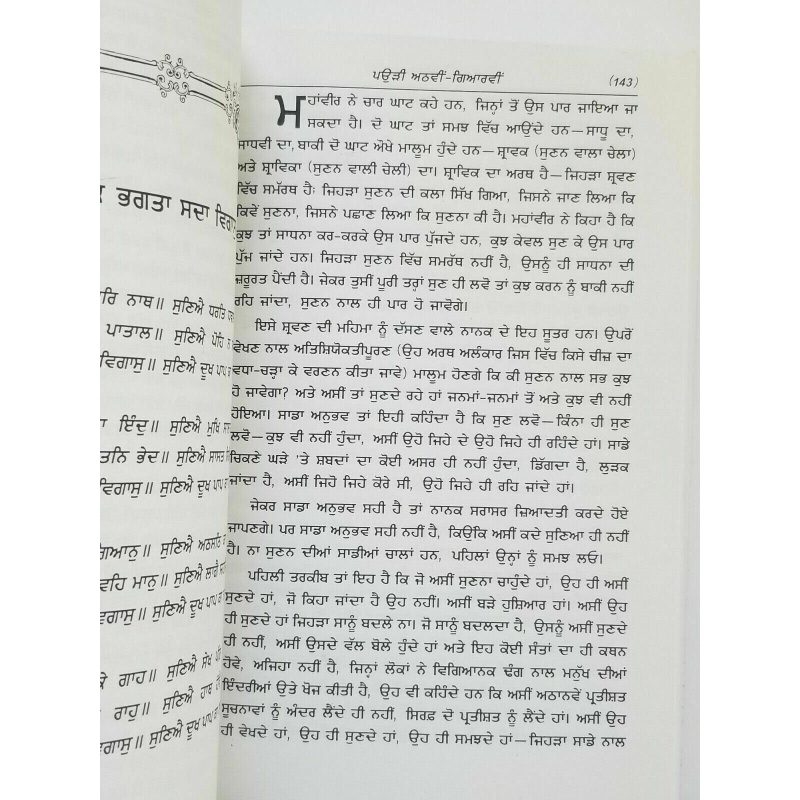 ਭਗਤਾ ਸਦਾ
ਨਾਥ॥ ਸੁਣਿਐ ਧਰਤਿ
ਪਾਤਾਲ॥ ਸੁਣਿਐ ਪੋਹਿ ਨ
ਵਿਗਾਸੁ॥ ਸੁਣਿਐ ਦੂਖ ਪਾਪ
ਇੰਦੁ॥ ਸੁਣਿਐ ਮੁਖਿ
ਤਨਿ ਭੇਦ॥ ਸੁਣਿਐ ਸਾਸਤ
ਵਿਗਾਸੁ॥ ਸੁਣਿਐ ਦੂਖ ਪਾਪ
ਗਿਆਨੁ॥ ਸੁਣਿਐ ਅਠਸਠਿ
ਮਾਨੁ॥ ਸੁਣਿਐ ਲਾਗੈ
ਵਿਗਾਸੁ॥ ਸੁਣਿਐ ਦੂਖ ਪਾਪ
ਕੇ ਗਾਹ॥ ਸੁਣਿਐ ਸੇਖ
ਰਾਹੁ॥ ਸੁਣਿਐ ਹਾਥ
ਵਿਗਾਸੁ॥ ਸੁਣਿਐ ਦੂਖ ਪਾਪ
ਪਉੜੀ ਅਠਵੀਂ-ਗਿਆਰਵੀਂ (143)
ਮਹਾਂਵੀਰ ਨੇ ਚਾਰ ਘਾਟ ਕਹੇ ਹਨ, ਜਿਨ੍ਹਾਂ ਤੋਂ ਉਸ ਪਾਰ ਜਾਇਆ ਜਾ
ਸਕਦਾ ਹੈ। ਦੋ ਘਾਟ ਤਾਂ ਸਮਝ ਵਿੱਚ ਆਉਂਦੇ ਹਨ—ਸਾਧੂ ਦਾ,
ਸਾਧਵੀ ਦਾ, ਬਾਕੀ ਦੋ ਘਾਟ ਔਖੇ ਮਾਲੂਮ ਹੁੰਦੇ ਹਨ—ਸ੍ਰਾਵਕ (ਸੁਣਨ ਵਾਲਾ ਚੇਲਾ)
ਅਤੇ ਸ੍ਰਾਵਿਕਾ (ਸੁਣਨ ਵਾਲੀ ਚੇਲੀ) ਦਾ। ਸ੍ਰਾਵਿਕ ਦਾ ਅਰਥ ਹੈ—ਜਿਹੜਾ ਸ੍ਰਵਣ
ਵਿੱਚ ਸਮੱਰਥ ਹੈ; ਜਿਹੜਾ ਸੁਣਨ ਦੀ ਕਲਾ ਸਿੱਖ ਗਿਆ, ਜਿਸਨੇ ਜਾਣ ਲਿਆ ਕਿ
ਕਿਵੇਂ ਸੁਣਨਾ, ਜਿਸਨੇ ਪਛਾਣ ਲਿਆ ਕਿ ਸੁਣਨਾ ਕੀ ਹੈ। ਮਹਾਂਵੀਰ ਨੇ ਕਿਹਾ ਹੈ ਕਿ
ਕੁਝ ਤਾਂ ਸਾਧਨਾ ਕਰ-ਕਰਕੇ ਉਸ ਪਾਰ ਪੁੱਜਦੇ ਹਨ, ਕੁਝ ਕੇਵਲ ਸੁਣ ਕੇ ਉਸ ਪਾਰ
ਪੁੱਜ ਜਾਂਦੇ ਹਨ। ਜਿਹੜਾ ਸੁਣਨ ਵਿੱਚ ਸਮੱਰਥ ਨਹੀਂ ਹੈ, ਉਸਨੂੰ ਹੀ ਸਾਧਨਾ ਦੀ
ਜ਼ਰੂਰਤ ਪੈਂਦੀ ਹੈ। ਜੇਕਰ ਤੁਸੀਂ ਪੂਰੀ ਤਰ੍ਹਾਂ ਸੁਣ ਹੀ ਲਵੋ ਤਾਂ ਕੁਝ ਕਰਨ ਨੂੰ ਬਾਕੀ ਨਹੀਂ
ਰਹਿ ਜਾਂਦਾ, ਸੁਣਨ ਨਾਲ ਹੀ ਪਾਰ ਹੋ ਜਾਵੋਗੇ।
ਇਸੇ ਸ੍ਰਵਣ ਦੀ ਮਹਿਮਾ ਨੂੰ ਦੱਸਣ ਵਾਲੇ ਨਾਨਕ ਦੇ ਇਹ ਸੂਤਰ ਹਨ। ਉਪਰੋਂ
ਵੇਖਣ ਨਾਲ ਅਤਿਸ਼ਿਯੋਕਤੀਪੂਰਣ (ਉਹ ਅਰਥ ਅਲੰਕਾਰ ਜਿਸ ਵਿੱਚ ਕਿਸੇ ਚੀਜ਼ ਦਾ
ਵਧਾ-ਚੜ੍ਹਾ ਕੇ ਵਰਣਨ ਕੀਤਾ ਜਾਵੇ) ਮਾਲੂਮ ਹੋਣਗੇ ਕਿ ਕੀ ਸੁਣਨ ਨਾਲ ਸਭ ਕੁਝ
ਹੋ ਜਾਵੇਗਾ? ਅਤੇ ਅਸੀਂ ਤਾਂ ਸੁਣਦੇ ਰਹੇ ਹਾਂ ਜਨਮਾਂ-ਜਨਮਾਂ ਤੋਂ ਅਤੇ ਕੁਝ ਵੀ ਨਹੀਂ
ਹੋਇਆ। ਸਾਡਾ ਅਨੁਭਵ ਤਾਂ ਇਹੀ ਕਹਿੰਦਾ ਹੈ ਕਿ ਸੁਣ ਲਵੋ—ਕਿੰਨਾ ਹੀ ਸੁਣ
ਲਵੋ—ਕੁਝ ਵੀ ਨਹੀਂ ਹੁੰਦਾ, ਅਸੀਂ ਉਹੋ ਜਿਹੇ ਦੇ ਉਹੋ ਜਿਹੇ ਹੀ ਰਹਿੰਦੇ ਹਾਂ। ਸਾਡੇ
ਚਿਕਣੇ ਘੜੇ 'ਤੇ ਸ਼ਬਦਾਂ ਦਾ ਕੋਈ ਅਸਰ ਹੀ ਨਹੀਂ ਹੁੰਦਾ, ਡਿੱਗਦਾ ਹੈ, ਲੁੜਕ
ਜਾਂਦਾ ਹੈ, ਅਸੀਂ ਜਿਹੋ ਜਿਹੇ ਕੋਰੇ ਸੀ, ਉਹੋ ਜਿਹੇ ਹੀ ਰਹਿ ਜਾਂਦੇ ਹਾਂ।
ਜੇਕਰ ਸਾਡਾ ਅਨੁਭਵ ਸਹੀ ਹੈ ਤਾਂ ਨਾਨਕ ਸਰਾਸਰ ਜ਼ਿਆਦਤੀ ਕਰਦੇ ਹੋਏ
ਜਾਪਣਗੇ। ਪਰ ਸਾਡਾ ਅਨੁਭਵ ਸਹੀ ਨਹੀਂ ਹੈ, ਕਿਉਂਕਿ ਅਸੀਂ ਕਦੇ ਸੁਣਿਆ ਹੀ ਨਹੀਂ
ਹੈ। ਨਾ ਸੁਣਨ ਦੀਆਂ ਸਾਡੀਆਂ ਚਾਲਾਂ ਹਨ, ਪਹਿਲਾਂ ਉਨ੍ਹਾਂ ਨੂੰ ਸਮਝ ਲਓ।
ਪਹਿਲੀ ਤਰਕੀਬ ਤਾਂ ਇਹ ਹੈ ਕਿ ਜੋ ਅਸੀਂ ਸੁਣਨਾ ਚਾਹੁੰਦੇ ਹਾਂ, ਉਹ ਹੀ ਅਸੀਂ
ਸੁਣਦੇ ਹਾਂ, ਜੋ ਕਿਹਾ ਜਾਂਦਾ ਹੈ ਉਹ ਨਹੀਂ। ਅਸੀਂ ਬੜੇ ਹੁਸ਼ਿਆਰ ਹਾਂ। ਅਸੀਂ ਉਹ
ਹੀ ਸੁਣਦੇ ਹਾਂ ਜਿਹੜਾ ਸਾਨੂੰ ਬਦਲੇ ਨਾ। ਜੋ ਸਾਨੂੰ ਬਦਲਦਾ ਹੈ, ਉਸਨੂੰ ਅਸੀਂ ਸੁਣਦੇ
ਹੀ ਨਹੀਂ, ਅਸੀਂ ਉਸਦੇ ਵੱਲ ਬੋਲੇ ਹੁੰਦੇ ਹਾਂ ਅਤੇ ਇਹ ਕੋਈ ਸੰਤਾਂ ਦਾ ਹੀ ਕਥਨ
ਹੋਵੇ, ਅਜਿਹਾ ਨਹੀਂ ਹੈ, ਜਿਨ੍ਹਾਂ ਲੋਕਾਂ ਨੇ ਵਿਗਿਆਨਕ ਢੰਗ ਨਾਲ ਮਨੁੱਖ ਦੀਆਂ
ਇੰਦਰੀਆਂ ਉਤੇ ਖੋਜ ਕੀਤੀ ਹੈ, ਉਹ ਵੀ ਕਹਿੰਦੇ ਹਨ ਕਿ ਅਸੀਂ ਅਠਾਨਵੇਂ ਪ੍ਰਤੀਸ਼ਤ
ਸੂਚਨਾਵਾਂ ਨੂੰ ਅੰਦਰ ਲੈਂਦੇ ਹੀ ਨਹੀਂ, ਸਿਰਫ਼ ਦੋ ਪ੍ਰਤੀਸ਼ਤ ਨੂੰ ਲੈਂਦੇ ਹਾਂ। ਅਸੀਂ ਉਹ
ਹੀ ਵੇਖਦੇ ਹਾਂ, ਉਹ ਹੀ ਸੁਣਦੇ ਹਾਂ, ਉਹ ਹੀ ਸਮਝਦੇ ਹਾਂ—ਜਿਹੜਾ ਸਾਡੇ ਨਾਲ